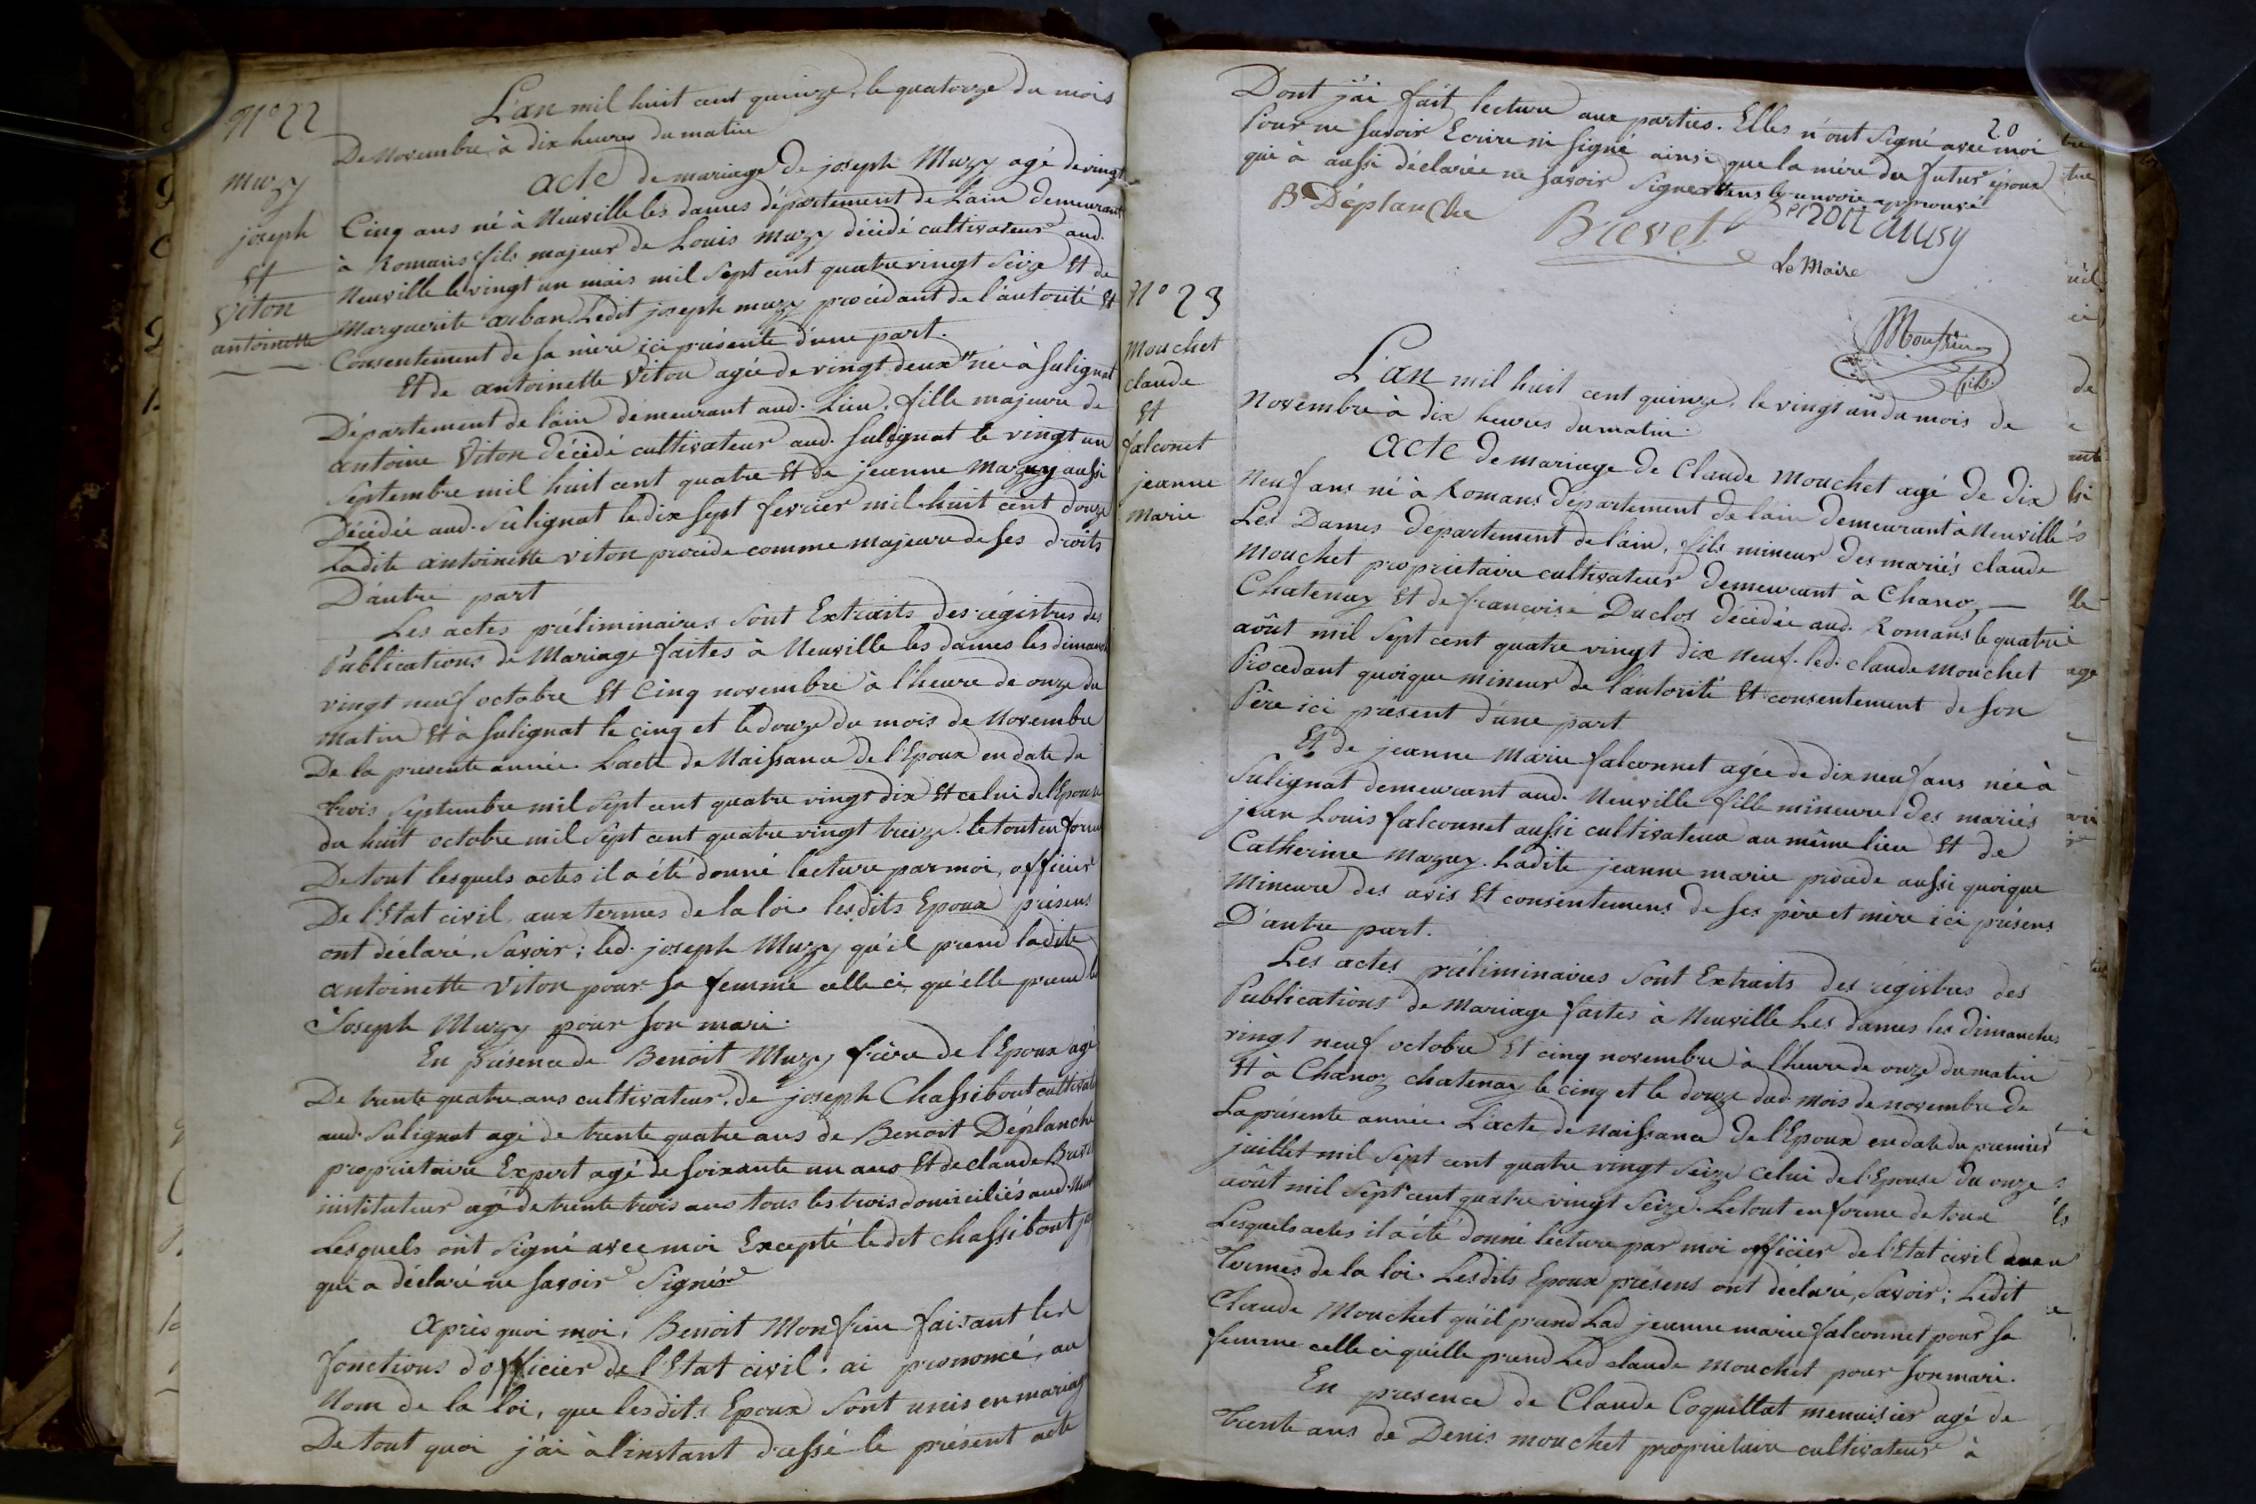 N° 22
Muzy
joseph
Et
Viton
antoinette
L'an mil huit cent quinze, le quatorze du mois
De Novembre à dix heures du matin
acte de mariage de joseph Muzy agé de vingt
Cinq ans né à Neuville les dames département de L'ain demeurant
à Romans fils majeur de Louis muzy décédé cultivateur aud.
Neuville le vingt un mais mil sept cent quatre vingt seize Et de
Marguerite auban Ledit joseph muzy procédant de l'autorité Et
Consentement de sa mère ici présente d'une part.
Et de antoinette Viton agée de vingt deux née à Sulignat
Département de l'ain demeurant aud. Lieu, fille majeure de
antoine Viton décédé cultivateur aud. Sulignat le vingt un
Septembre mil huit cent quatre Et de jeanne Mazuy aussi
Décédée aud. Sulignat le dix sept fevrier mil huit cent douze
Ladite antoinette viton procède comme majeure de ses droits
D'autre part
Les actes préliminaires sont Extraits des régistres des
Publications de Mariage faites à Neuville les dames les dimanch
vingt neuf octobre Et Cinq novembre à l'heure de onze du
Matin Et à Sulignat le cinq et le douze du mois de Novembre
De la presente année. L'acte de Naissance de l'Epoux en date du
trois Septembre mil sept cent quatre vingt dix Et celui de l'Epouse
du huit octobre mil sept cent quatre vingt treize. le tout en forme
De tout lesquels actes il a été donné lecture par moi, officier
De l'Etat civil aux termes de la loi. lesdits Epoux présens
ont déclaré, Savoir; led. joseph Muzy qu'il prend ladite
antoinette Viton pour sa femme celle ci, qu'elle prend le
Joseph Muzy pour son mari.
En présence de Benoit Muzy frère de l'Epoux agé
De trente quatre ans cultivateur, de joseph Chassibout cultivat
aud. Sulignat agé de trente quatre ans de Benoit Déplanche
proprietaire Expert agé de soixante un ans Et de claude Brevet
instituteur agé de trente trois ans tous les trois domiciliés aud. Neu
Lesquels ont signé avec moi Excepté ledit chassibout
qui a déclaré ne savoir Signer
Après quoi moi, Benoit Monfrin faisant les
fonctions d'officier de l'Etat civil. ai prononcé, au
Nom de la loi, que lesdits Epoux sont unis en mariage
De tout quoi j'ai à l'instant dressé le présent acte
20
Dont j'ai fait lecture aux parties. Elles n'ont signé avec moi
Pour ne savoir Ecrire ni signé ainsi que la mère du futur époux
qui à aussi déclarée ne savoir Signer
approuvé
B Déplanche
Brevet
muzy
Le Maire
Monfrin
fils
N° 23
Mouchet
claude
Et
falconet
jeanne
marie
L'an mil huit cent quinze, le vingt un du mois de
Novembre à dix heures du matin.
Acte de mariage de Claude Mouchet agé de dix
Neuf ans né à Romans département de l'ain demeurant à Neuville
Les Dames département de l'ain, fils mineur des mariés claude
Mouchet proprietaire cultivateur demeurant à Chanoz
Chatenay Et de francoise Duclos décédée aud. Romans le quatre
août mil sept cent quatre vingt dix neuf. led. claude Mouchet
Procedant quoique mineur de l'autorité Et consentement de son
Père ici présent d'une part
Et de jeanne Marie falconnet agée de dix neuf ans née à
Sulignat demeurant aud. Neuville fille mineure des mariés
jean Louis falconnet aussi cultivateur au même lieu Et de
Catherine Mazuy. Ladite jeanne marie procède aussi quoique
Mineure des avis Et consentemens de ses père et mère ici présens
D'autre part.
Les actes préliminaires sont Extraits des régistres des
Publications de Mariage faites à Neuville Les dames les dimanches
vingt neuf octobre Et cinq novembre à l'heure de onze du matin
Et à Chanoz chatenay le cinq et le douze dud. mois de novembre de
La présente année. L'acte de Naissance de l'Epoux en date du premier
juillet mil sept cent quatre vingt Seize celui de l'Epouse du onze
août mil sept cent quatre vingt Seize. Le tout en forme de tous
Lesquels actes il a été donné lecture par moi officier de l'Etat civil aux
Termes de la loi. Lesdits Epoux présens ont déclaré, Savoir; Ledit
Claude Mouchet qu'il prend Lad jeanne marie falconnet pour sa
femme celle ci qu'elle prend Led claude Mouchet pour son mari.
En presence de Claude Coquillat menuisier agé de
Trente ans de Denis mouchet proprietaire cultivateur à